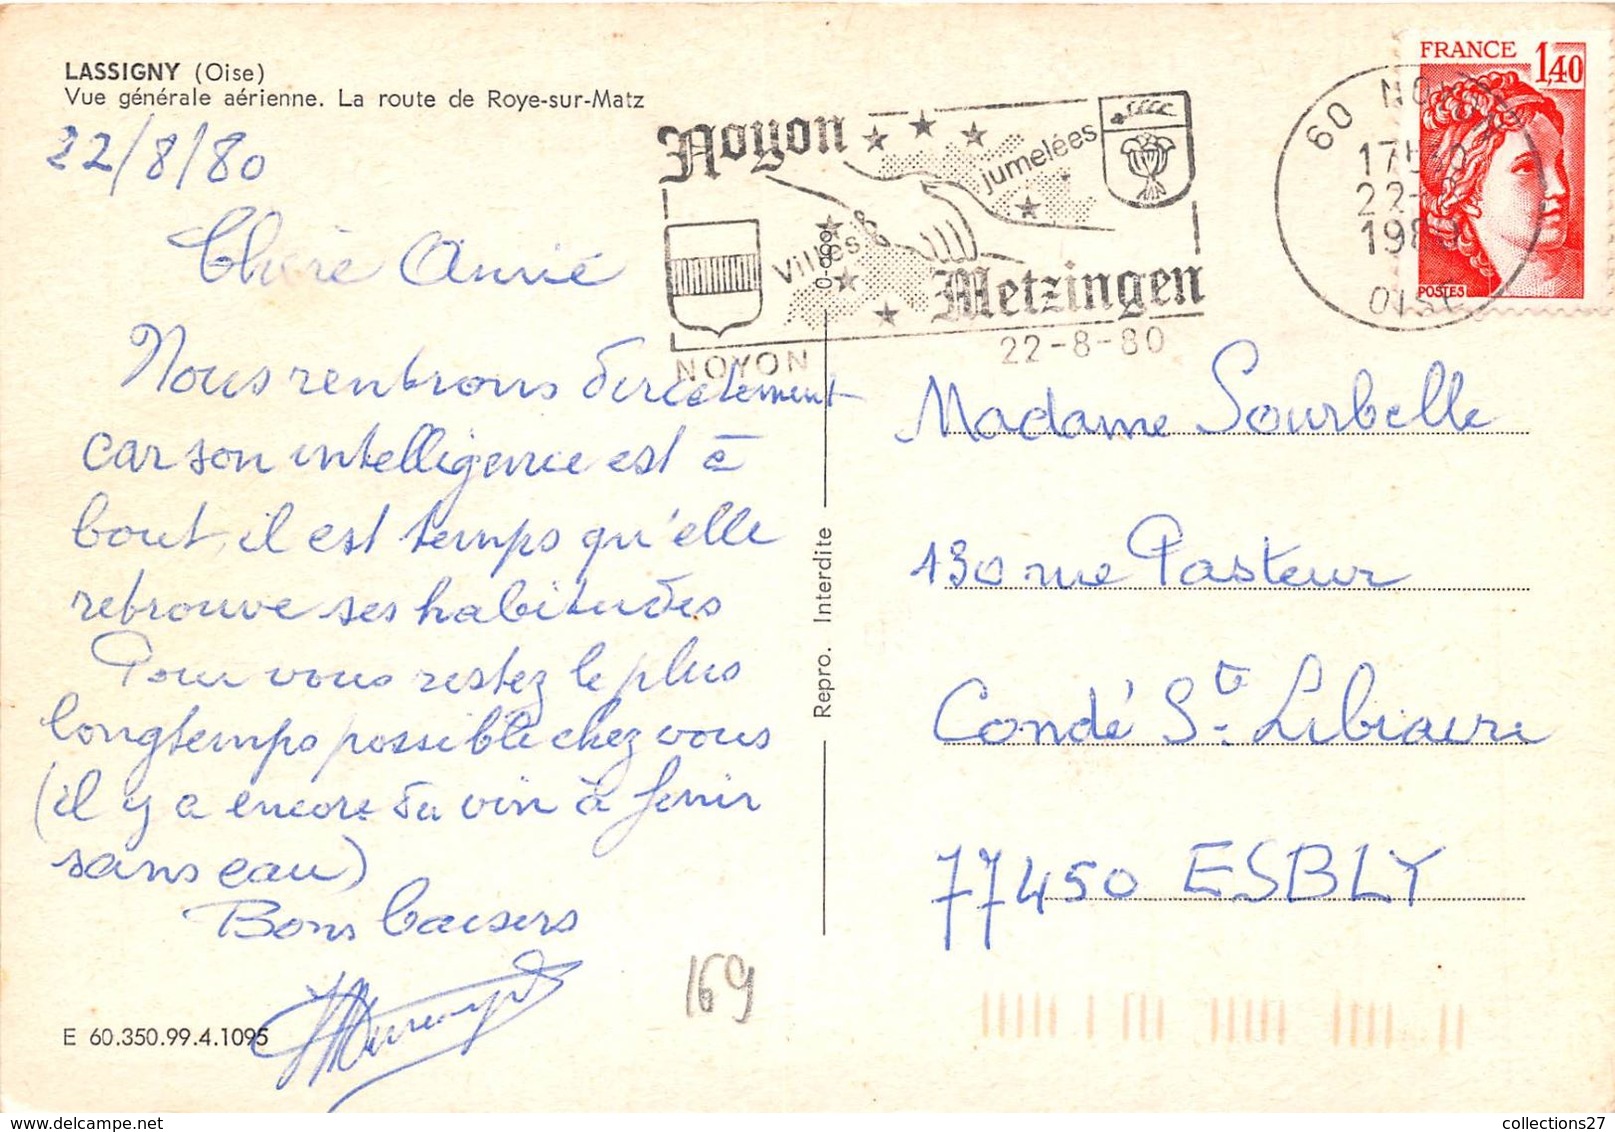 LASSIGNY (Oise)
Vue générale aérienne. La route de Roye-sur-Matz
22/8/80
Chère Annie
Nous rentrons directement
car son intelligence est à
bout, il est temps qu'elle
retrouve ses habitudes
Pour vous restez le plus
longtemps possible chez vous
(il y a encore du vin à finir
sans eau)
Bons baisers
E 60.350.99.4.1095
169
Repro. Interdite
Noyon
jumelées
Villes
0-699
Metzingen
NOYON
22-8-80
60 NOYON
22-8
1980
OISE
FRANCE 1,40
POSTES
Madame Sourbelle
130 rue Pasteur
Condé Ste Libiaire
77450 ESBLY
collections27